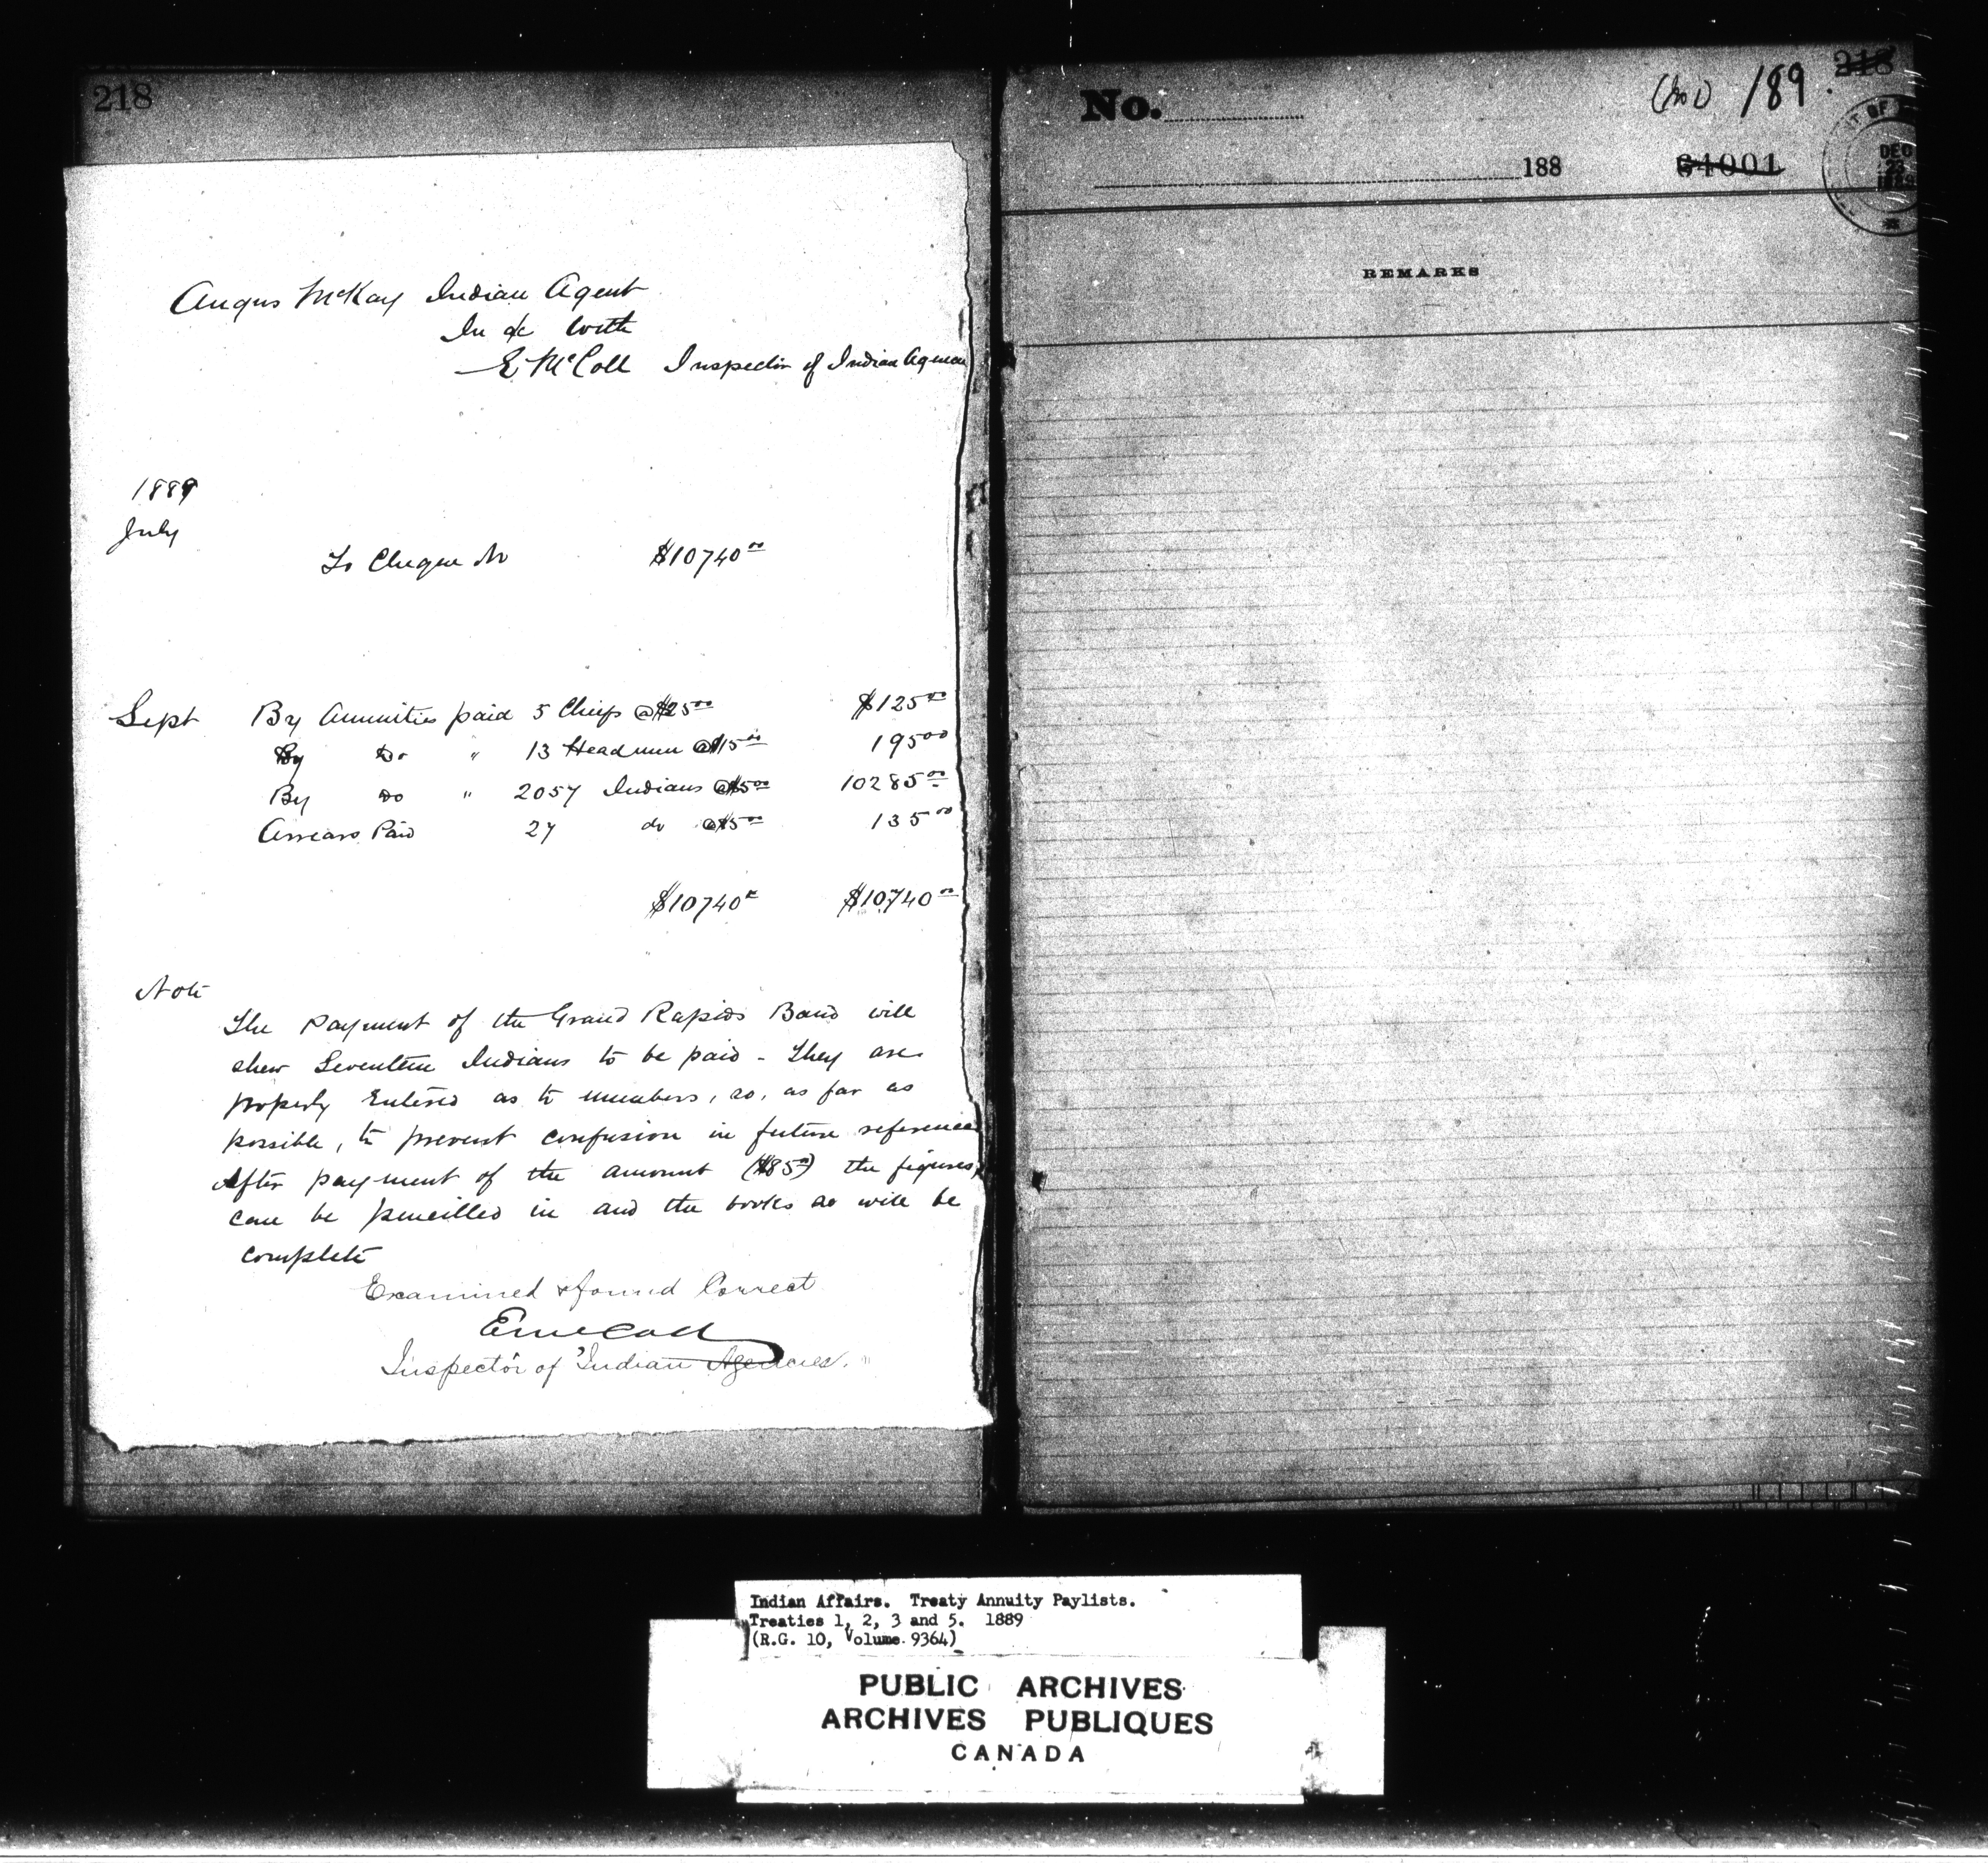 218
Angus McKay Indian Agent
In a/c with
E McColl Inspector of Indian Agencies
1889
July
To Cheque No $10740 00
Sept By Annuities paid 5 Chiefs @ $25 00 $125 00
By Do " 13 Headmen @ $15 00 195 00
By Do " 2057 Indians @ $5 00 10285 00
Arrears Paid 27 do @ $5 00 135 00
$10740 00 $10740 00
Note
The Payment of the Grand Rapids Band will
shew Seventeen Indians to be paid - They are
properly Entered as to numbers, so, as far as
possible, to prevent confusion in future reference
After payment of the amount ($85 00) the figures
can be pencilled in and the books so will be
complete
Examined & found Correct
E McColl
Inspector of Indian Agencies.
No.
189.
218
188
64001
DEC
23
1889
REMARKS
Indian Affairs. Treaty Annuity Paylists.
Treaties 1, 2, 3 and 5. 1889
(R.G. 10, Volume 9364)
PUBLIC ARCHIVES
ARCHIVES PUBLIQUES
CANADA